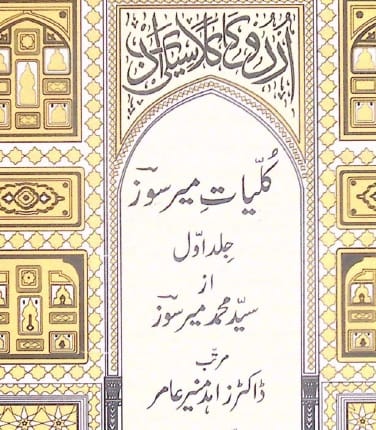 اُردو کا کلاسیکی ادب
کُلّیاتِ میر سوزؔ
جلد اوّل
از
سیّد محمد میر سوزؔ
مرتّب
ڈاکٹر زاہد منیر عامر